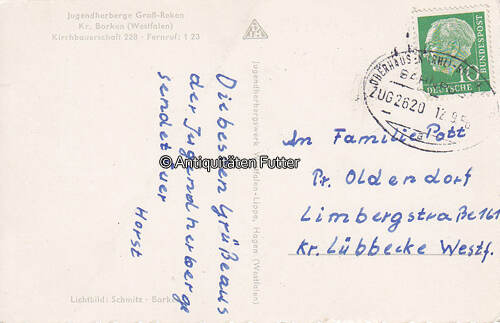 Jugendherberge Groß-Reken
Kr. Borken (Westfalen)
Kirchbauerschaft 228 - Fernruf: 1 23
Die besten Grüße aus
der Jugendherberge
sendet euer
Horst
Lichtbild: Schmitz - Borken
Jugendherbergswerk Westfalen-Lippe, Hagen (Westfalen)
© Antiquitäten Futter
10
DEUTSCHE BUNDESPOST
ZUG 2620 12.9.
An Familie Pott
Pr. Oldendorf
Limbergstraße 161
Kr. Lübbecke Westf.